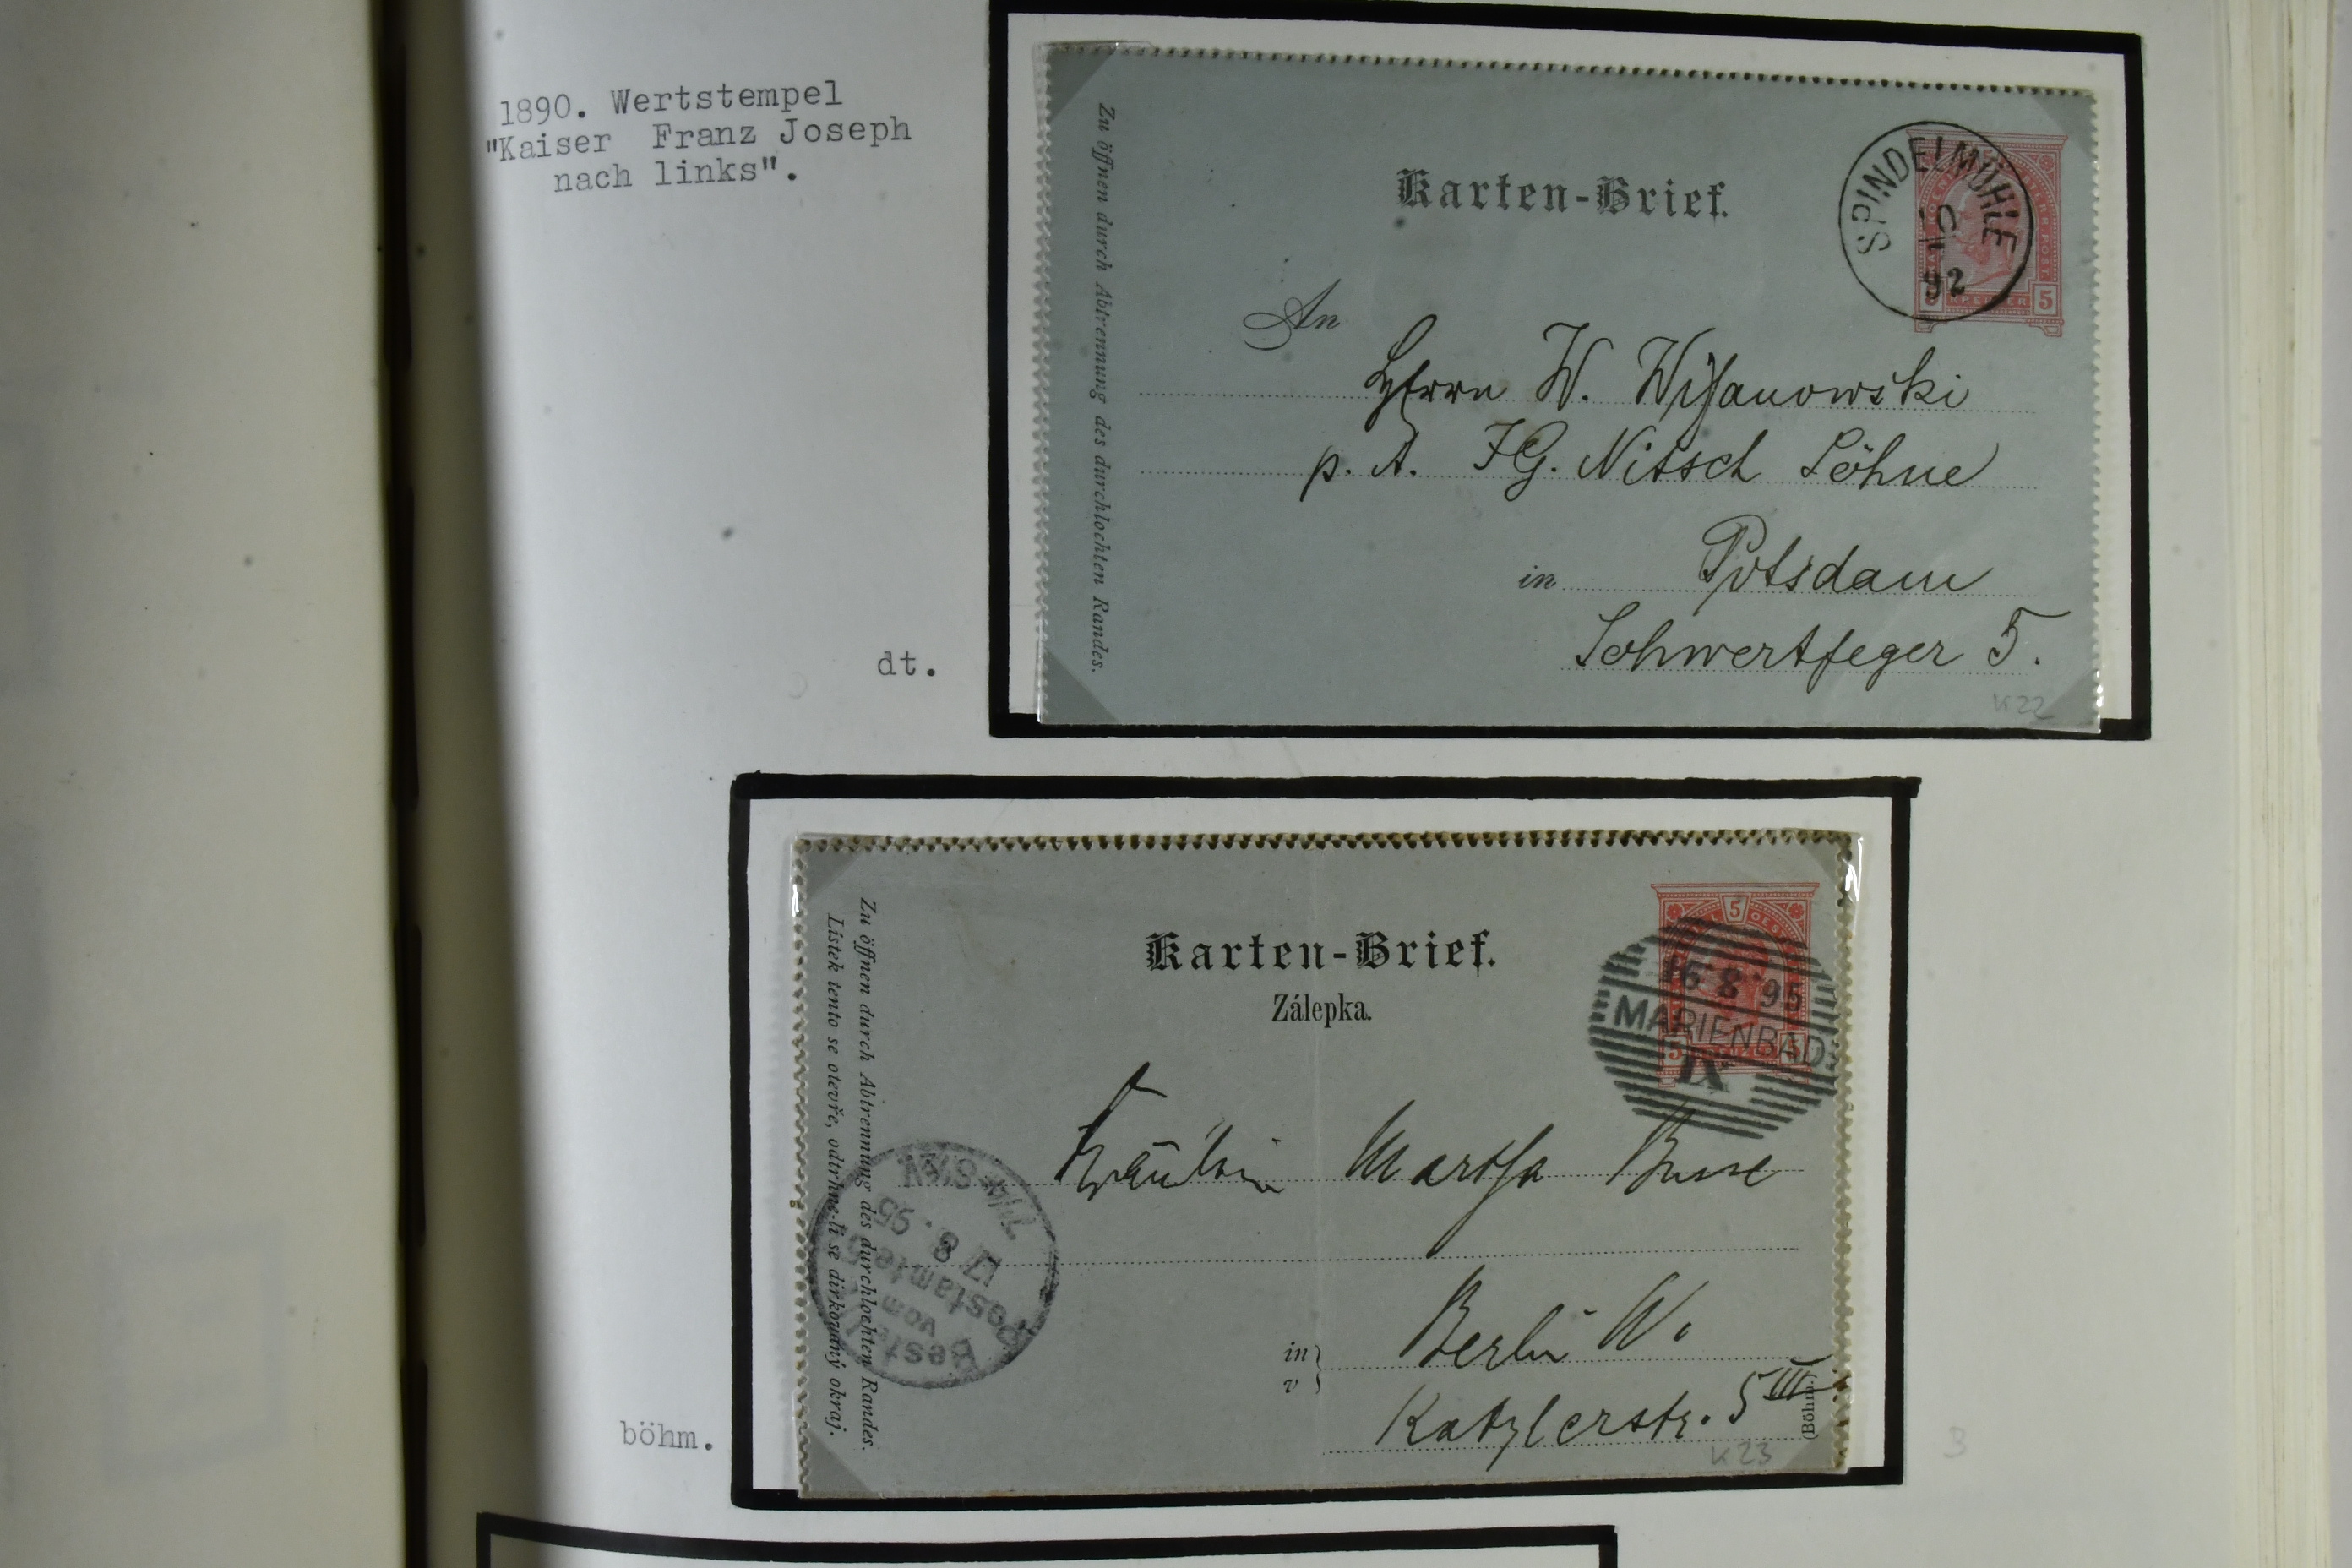 1890. Wertstempel
"Kaiser Franz Joseph
nach links".
dt.
Zu öffnen durch Abtrennung des durchlochten Randes.
Karten-Brief.
SPINDELMÜHLE
92
KREUZER 5
An
Herrn W.
p. A. JG. Nitsch Söhne
in Potsdam
Schwertfeger 5.
K22
böhm.
Zu öffnen durch Abtrennung des durchlochten Randes.
Lístek tento se otevře, odtrhne-li se dirkovaný okraj.
Karten-Brief.
Zálepka.
5
16 8 95
MARIENBAD
IX
5 5
Fräulein Martha Busse
Bestellt
vom
Postamte
17 8. 95
in
v
Berlin W.
Katzlerstr. 5 III
(Böhm.)
K23
3